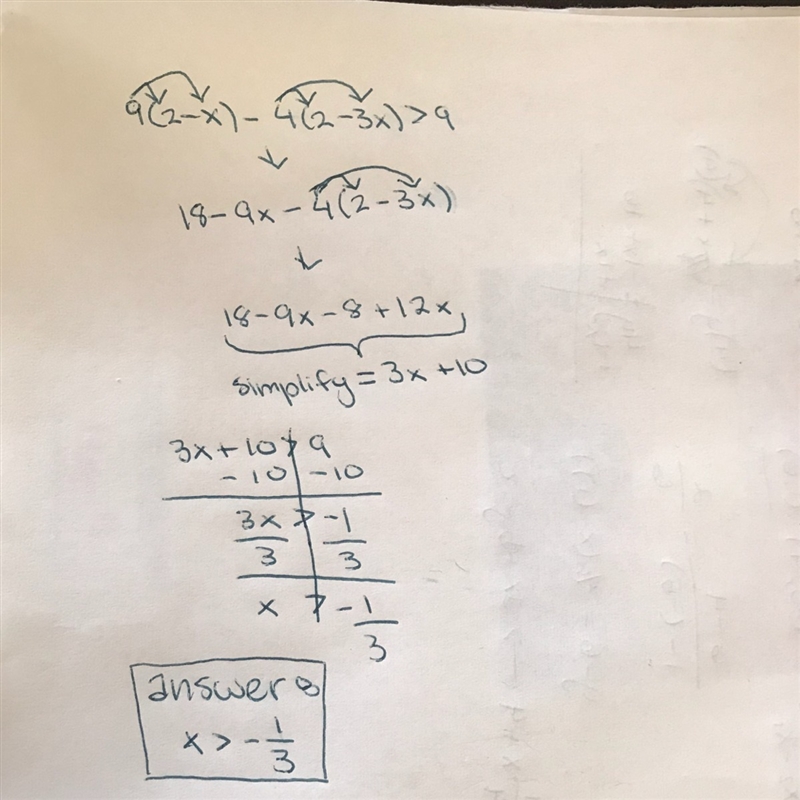 9(2-x)-4(2-3x)>9
18-9x-4(2-3x)
18-9x-8+12x
simplify=3x+10
3x+10>9
-10 -10
3x/3 > -1/3
x > -1/3
answer:
x > -1/3